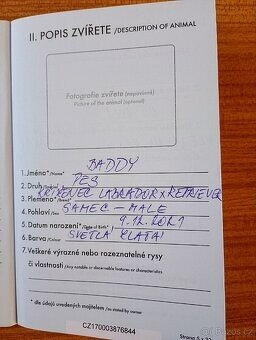 II. POPIS ZVÍŘETE /DESCRIPTION OF ANIMAL
Fotografie zvířete (nepovinné)
Picture of the animal (optional)
1. Jméno*/Name* BADDY
2. Druh PES
3. Plemeno* KŘÍŽENEC LABRADOR X RETRIEVER
4. Pohlaví SAMEC – MALE
5. Datum narození*/Date of Birth* 9.12.2021
6. Barva /Colour SVĚTLÁ ZLATÁ
7. Veškeré výrazné nebo rozeznatelné rysy
či vlastnosti /Any notable or discernable features or characteristics
* dle údajů uvedených majitelem /as stated by owner
CZ170003876844
Strana 5 z 32